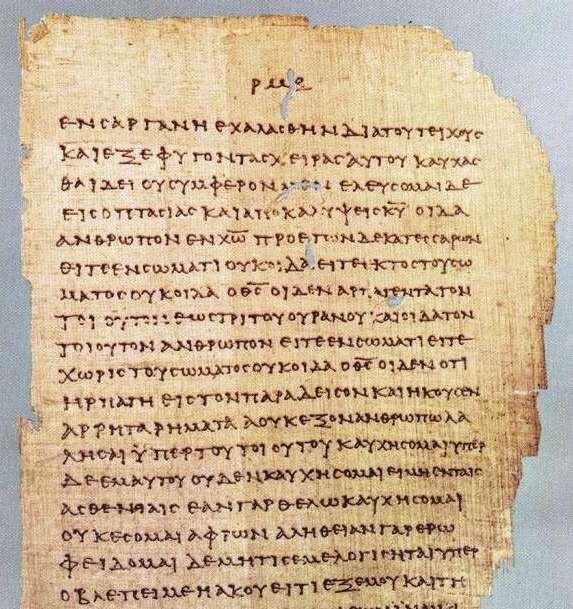 ρμε
ΕΝϹΑΡΓΑΝΗΕΧΑΛΑϹΘΗΝΔΙΑΤΟΥΤΕΙΧΟΥϹ
ΚΑΙΕΞΕΦΥΓΟΝΤΑϹΧΕΙΡΑϹΑΥΤΟΥΚΑΥΧΑϹ
ΘΑΙΔΕΙΟΥϹΥΜΦΕΡΟΝΜΕΝΕΛΕΥϹΟΜΑΙΔΕ
ΕΙϹΟΠΤΑϹΙΑϹΚΑΙΑΠΟΚΑΛΥΨΕΙϹΚ̅Υ̅ΟΙΔΑ
ΑΝΘΡΩΠΟΝΕΝΧ̅Ω̅ΠΡΟΕΤΩΝΔΕΚΑΤΕϹϹΑΡΩΝ
ΕΙΤΕΕΝϹΩΜΑΤΙΟΥΚΟΙΔΑΕΙΤΕΕΚΤΟϹΤΟΥϹΩ
ΜΑΤΟϹΟΥΚΟΙΔΑΟΘ̅Ϲ̅ΟΙΔΕΝΑΡΠΑΓΕΝΤΑΤΟΝ
ΤΟΙΟΥΤΟΝΕΩϹΤΡΙΤΟΥΟΥΡΑΝΟΥΚΑΙΟΙΔΑΤΟΝ
ΤΟΙΟΥΤΟΝΑΝΘΡΩΠΟΝΕΙΤΕΕΝϹΩΜΑΤΙΕΙΤΕ
ΧΩΡΙϹΤΟΥϹΩΜΑΤΟϹΟΥΚΟΙΔΑΟΘ̅Ϲ̅ΟΙΔΕΝΟΤΙ
ΗΡΠΑΓΗΕΙϹΤΟΝΠΑΡΑΔΕΙϹΟΝΚΑΙΗΚΟΥϹΕΝ
ΑΡΡΗΤΑΡΗΜΑΤΑΑΟΥΚΕΞΟΝΑΝΘΡΩΠΩΛΑ
ΛΗϹΑΙΫΠΕΡΤΟΥΤΟΙΟΥΤΟΥΚΑΥΧΗϹΟΜΑΙΥΠΕΡ
ΔΕΕΜΑΥΤΟΥΟΥΔΕΝΚΑΥΧΗϹΟΜΑΙΕΙΜΗΕΝΤΑΙϹ
ΑϹΘΕΝΕΙΑΙϹΕΑΝΓΑΡΘΕΛΩΚΑΥΧΗϹΟΜΑΙ
ΟΥΚΕϹΟΜΑΙΑΦΡΩΝΑΛΗΘΕΙΑΝΓΑΡΕΡΩ
ΦΕΙΔΟΜΑΙΔΕΜΗΤΙϹΕΜΕΛΟΓΙϹΗΤΑΙΥΠΕΡ
ΟΒΛΕΠΕΙΜΕΗΑΚΟΥΕΙΤΙΕΞΕΜΟΥΚΑΙΤΗ